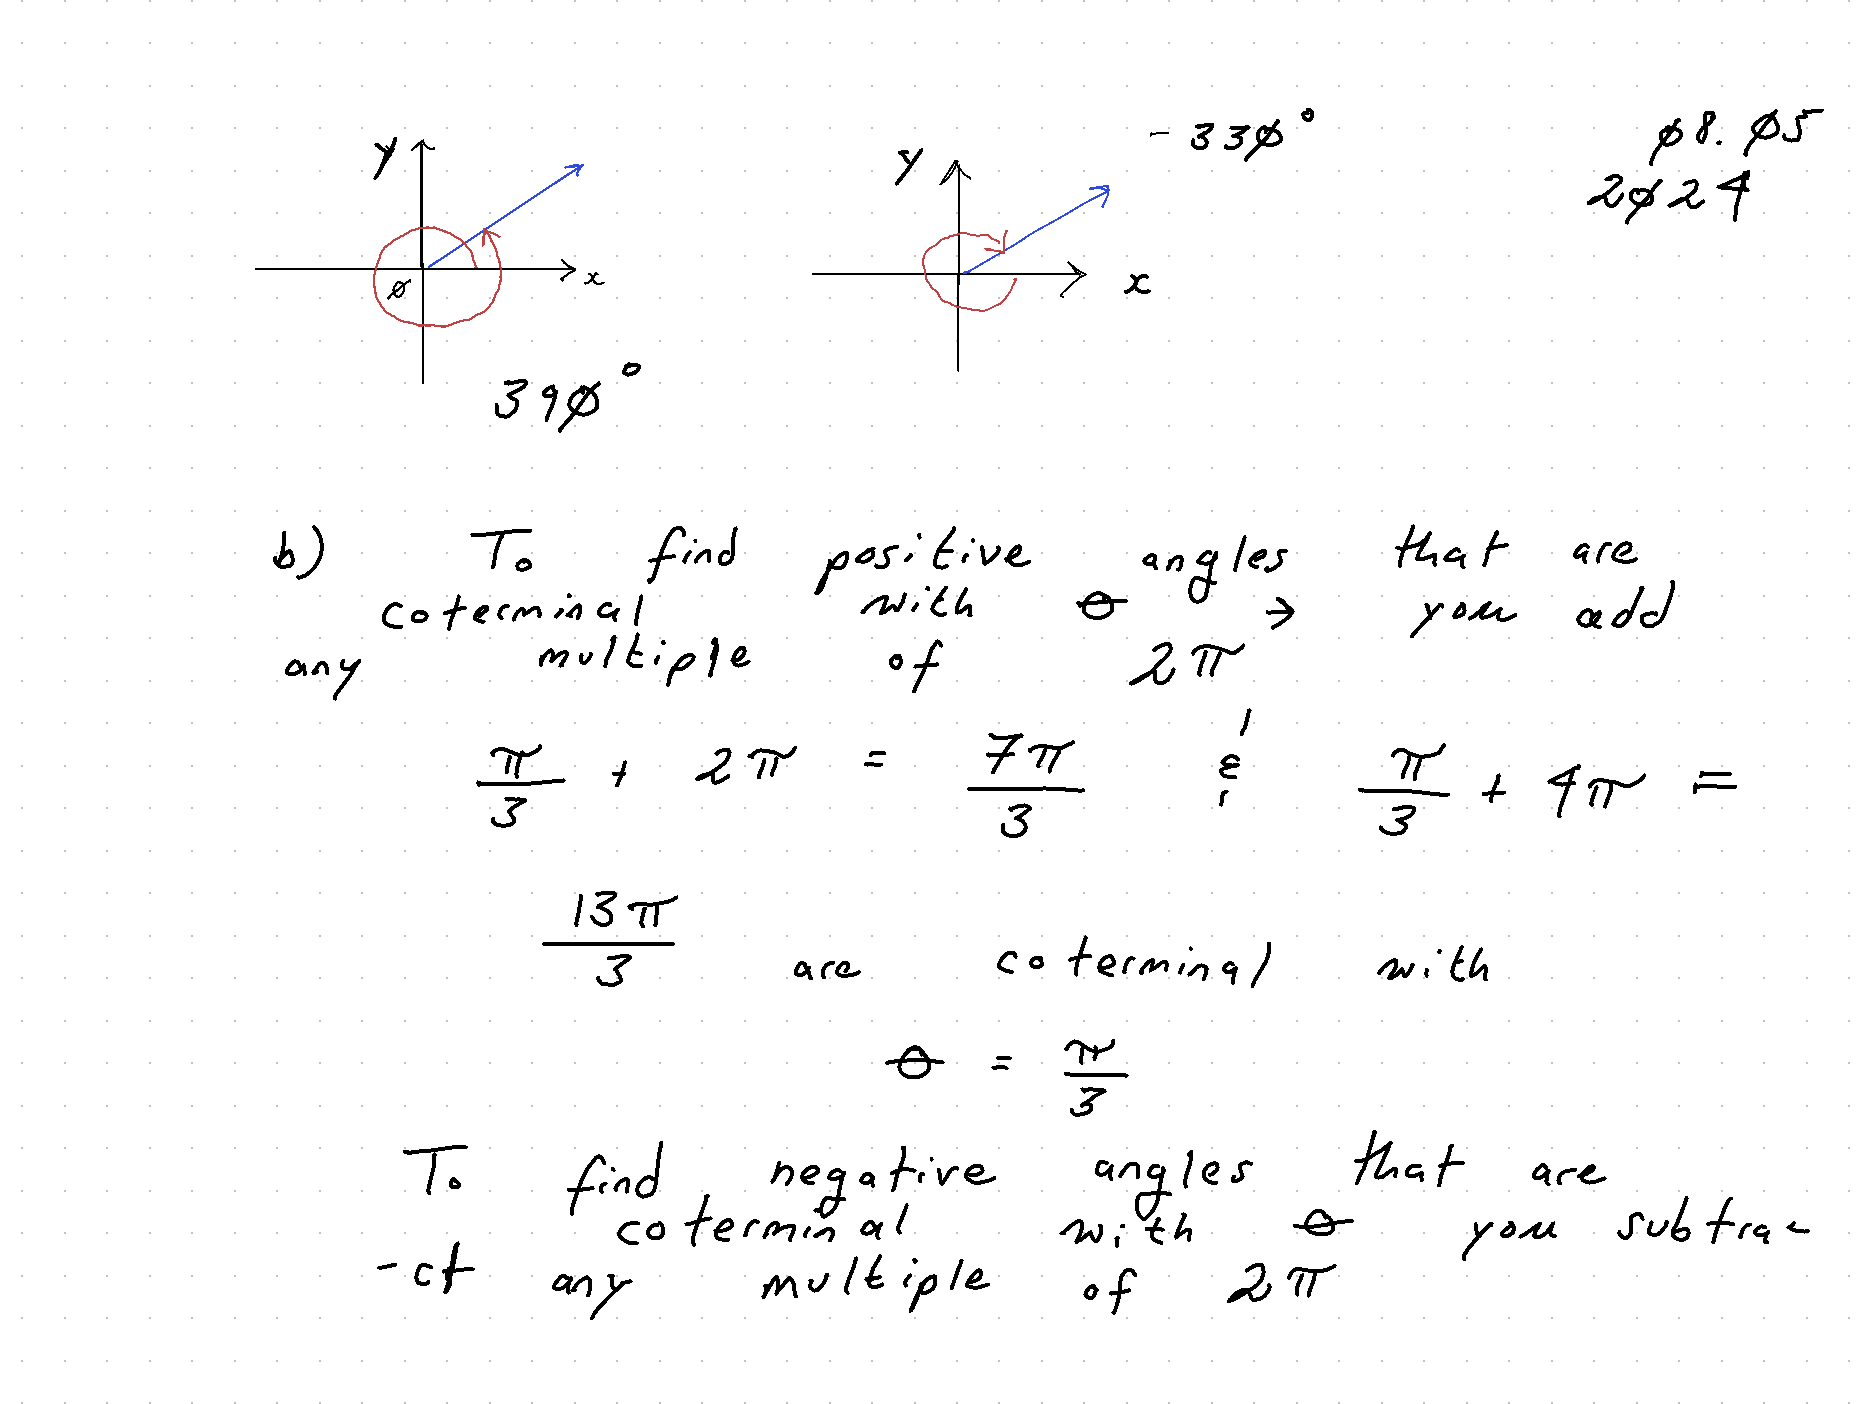 - 33ø° ø8. ø5
y y 2ø24
ø x x
39ø°
b) To find positive angles that are
coterminal with θ → you add
any multiple of 2π
π/3 + 2π = 7π/3 & π/3 + 4π =
13π/3 are coterminal with
θ = π/3
To find negative angles that are
coterminal with θ you subtrac
-ct any multiple of 2π